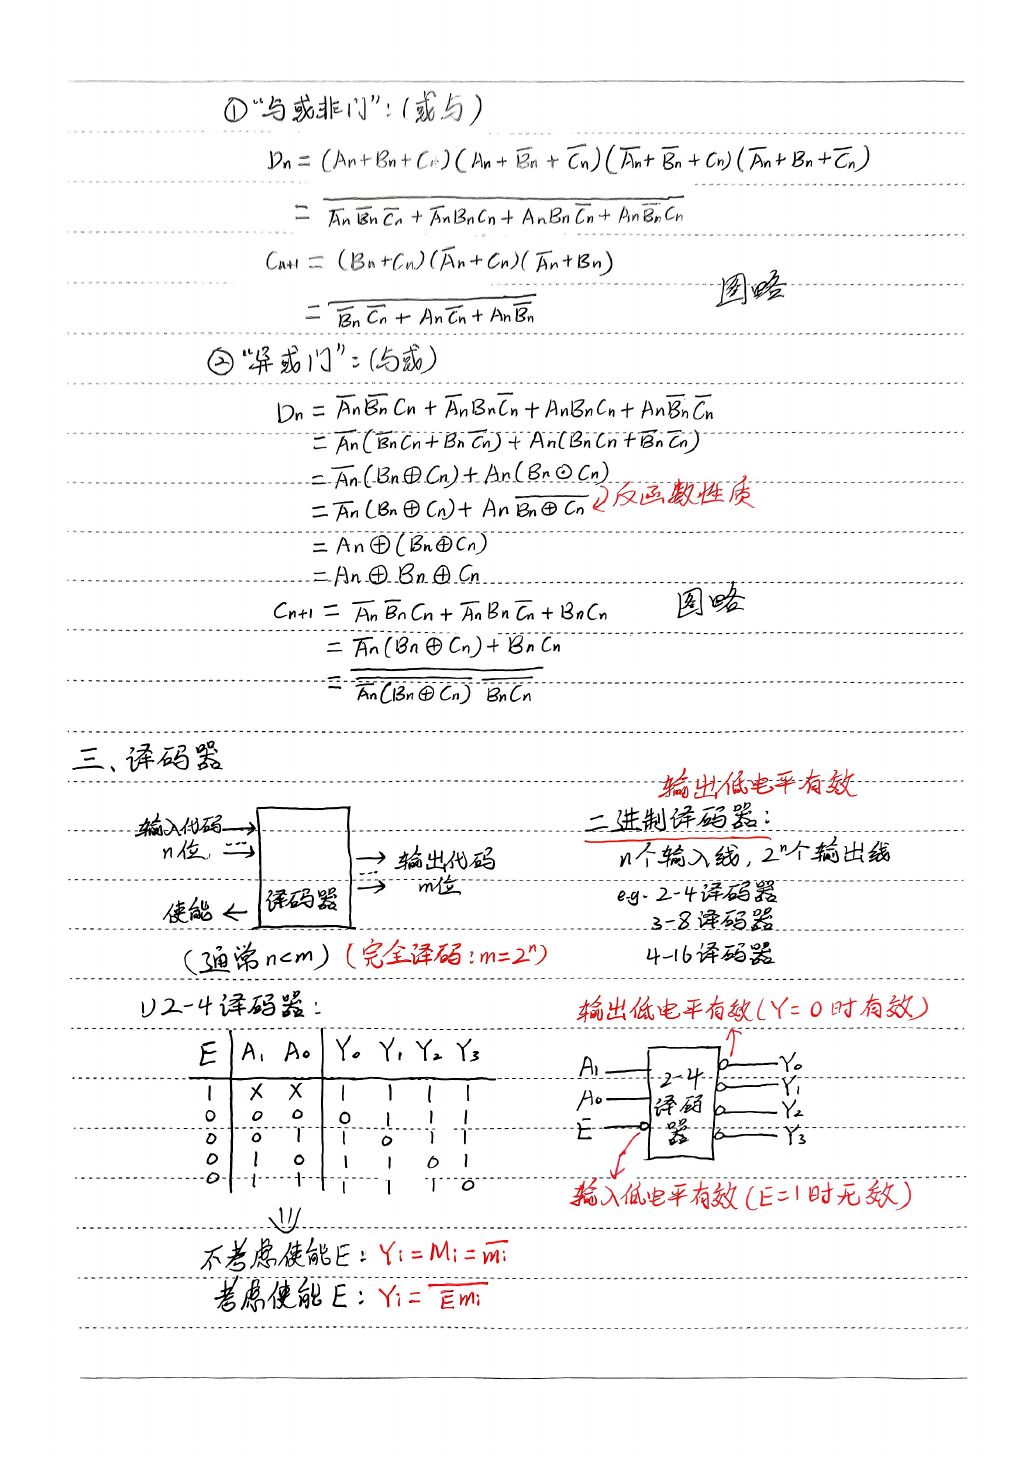 ①“与或非门”:(或与)
Dn = (An+Bn+Cn)(An+B̅n+C̅n)(A̅n+B̅n+Cn)(A̅n+Bn+C̅n)
= \overline{A̅n B̅n C̅n + A̅n Bn Cn + An Bn C̅n + An B̅n Cn}
Cn+1 = (Bn+Cn)(A̅n+Cn)(A̅n+Bn)
图略
= \overline{B̅n C̅n + An C̅n + An B̅n}
②“异或门”:(与或)
Dn = A̅n B̅n Cn + A̅n Bn C̅n + An Bn Cn + An B̅n C̅n
= A̅n(B̅n Cn + Bn C̅n) + An(Bn Cn + B̅n C̅n)
= A̅n(Bn⊕Cn) + An(Bn⊙Cn)
= A̅n(Bn⊕Cn) + An \overline{Bn⊕Cn} 反函数性质
= An⊕(Bn⊕Cn)
= An⊕Bn⊕Cn
Cn+1 = A̅n B̅n Cn + A̅n Bn C̅n + Bn Cn 图略
= A̅n(Bn⊕Cn) + Bn Cn
= \overline{\overline{A̅n(Bn⊕Cn)} \overline{Bn Cn}}
三、译码器
输入代码
n位
使能
译码器
输出代码
m位
(通常n<m)(完全译码:m=2ⁿ)
输出低电平有效
二进制译码器:
n个输入线,2ⁿ个输出线
e.g. 2-4译码器
3-8译码器
4-16译码器
1) 2-4译码器:
E A1 A0 Y0 Y1 Y2 Y3
1 X X 1 1 1 1
0 0 0 0 1 1 1
0 0 1 1 0 1 1
0 1 0 1 1 0 1
0 1 1 1 1 1 0
输出低电平有效(Y=0时有效)
A1
A0
E
2-4
译码
器
Y0
Y1
Y2
Y3
输入低电平有效(E=1时无效)
不考虑使能E: Yi = Mi = \overline{mi}
考虑使能E: Yi = \overline{E̅ mi}